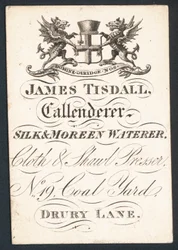 JAMES TISDALL,
Callenderer
SILK & MOREEN WATERER,
Cloth & Shawl Presser,
No. 19, Coal Yard
DRURY LANE.